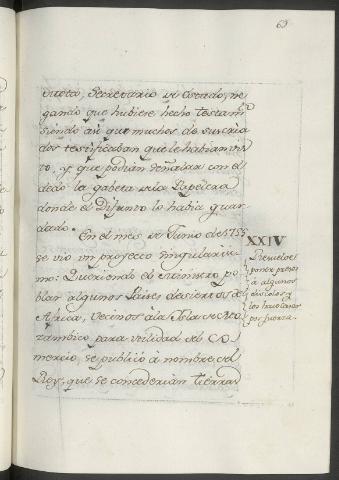 63
Secretario de Estado, ne
gando que hubiese hecho testam.to
siendo asi que muchos de sus cria
dos testificaban que le habian vis
to, y que podian señalar con el
dedo la gabeta de la Papelera
donde el Difunto lo habia guar
dado.
En el mes de Junio de 1755
se vio un proyecto singularisi
mo: Queriendo el Ministro po
blar algunos Paises desiertos de
Africa, vecinos à la Isla de Mo
zambico, para utilidad del Co
mercio, se publicó à nombre del
Rey, que se concederian tierras
XXIV
poner presos
à algunos
discolos, y
los
por fuerza.